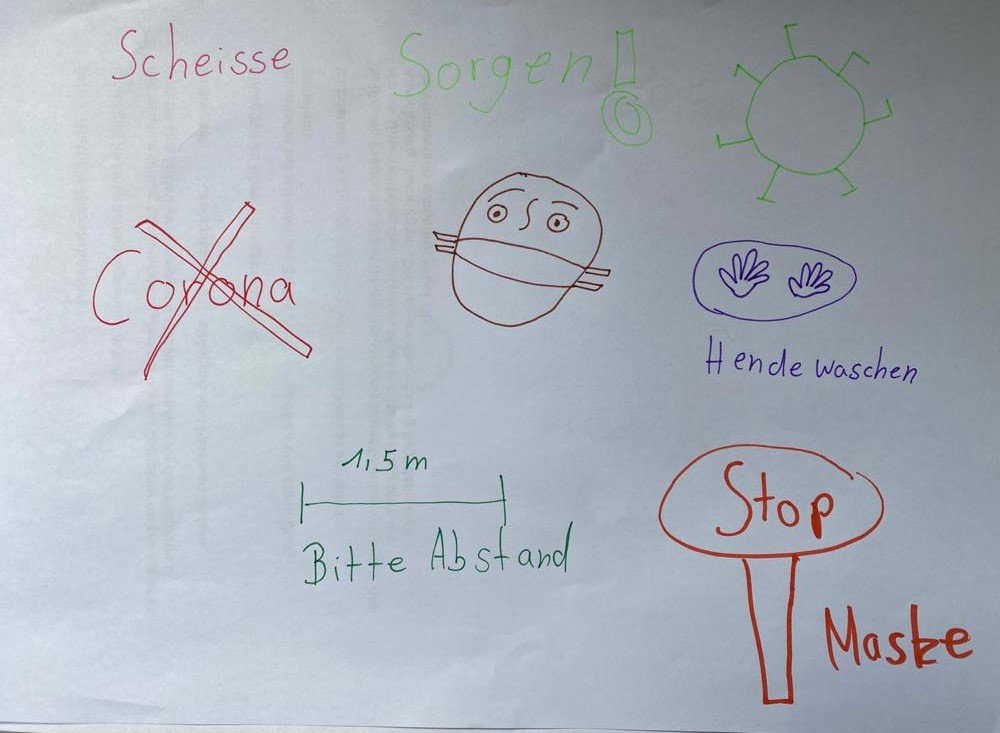 Scheisse
Sorgen!
Corona
Hende waschen
1,5 m
Bitte Abstand
Stop
Maske